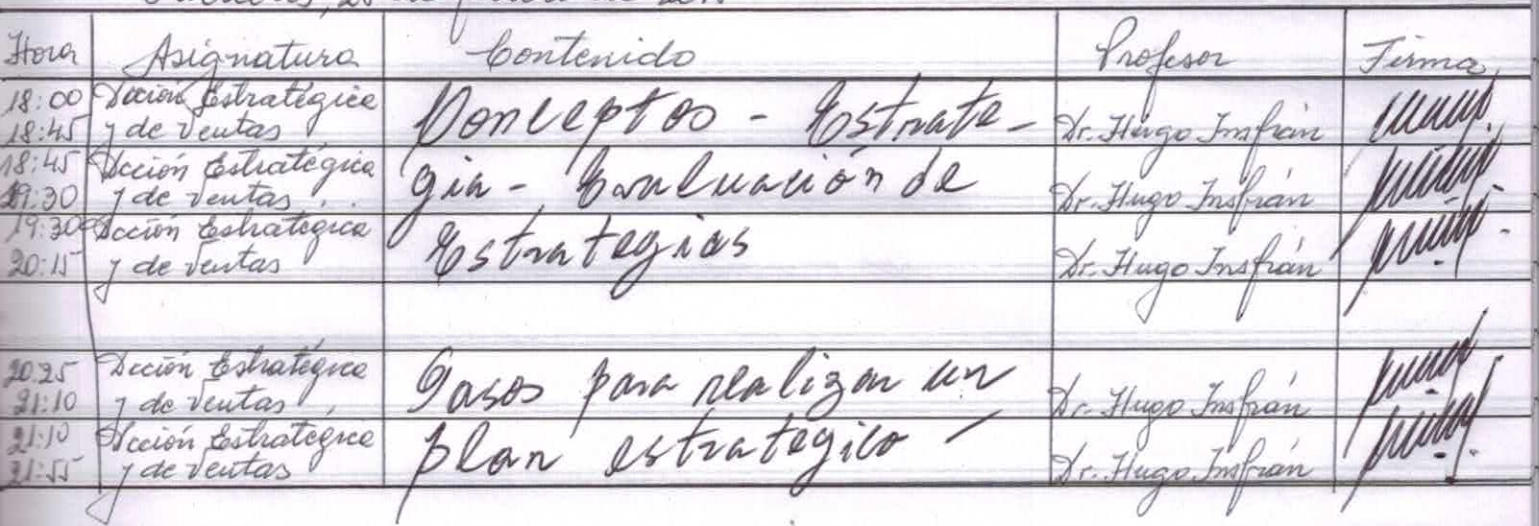 Hora Asignatura Contenido Profesor Firma
18:00 Dcción Estratégica
18:45 y de Ventas Conceptos - Estrate- Dr. Hugo Insfrán
18:45 Dcción Estratégica
19:30 y de Ventas gia - Evaluación de Dr. Hugo Insfrán
19:30 Dcción Estratégica
20:15 y de Ventas Estrategias Dr. Hugo Insfrán
20:25 Dcción Estratégica
21:10 y de Ventas Pasos para realizar un Dr. Hugo Insfrán
21:10 Dcción Estratégica
21:55 y de Ventas plan estratégico - Dr. Hugo Insfrán